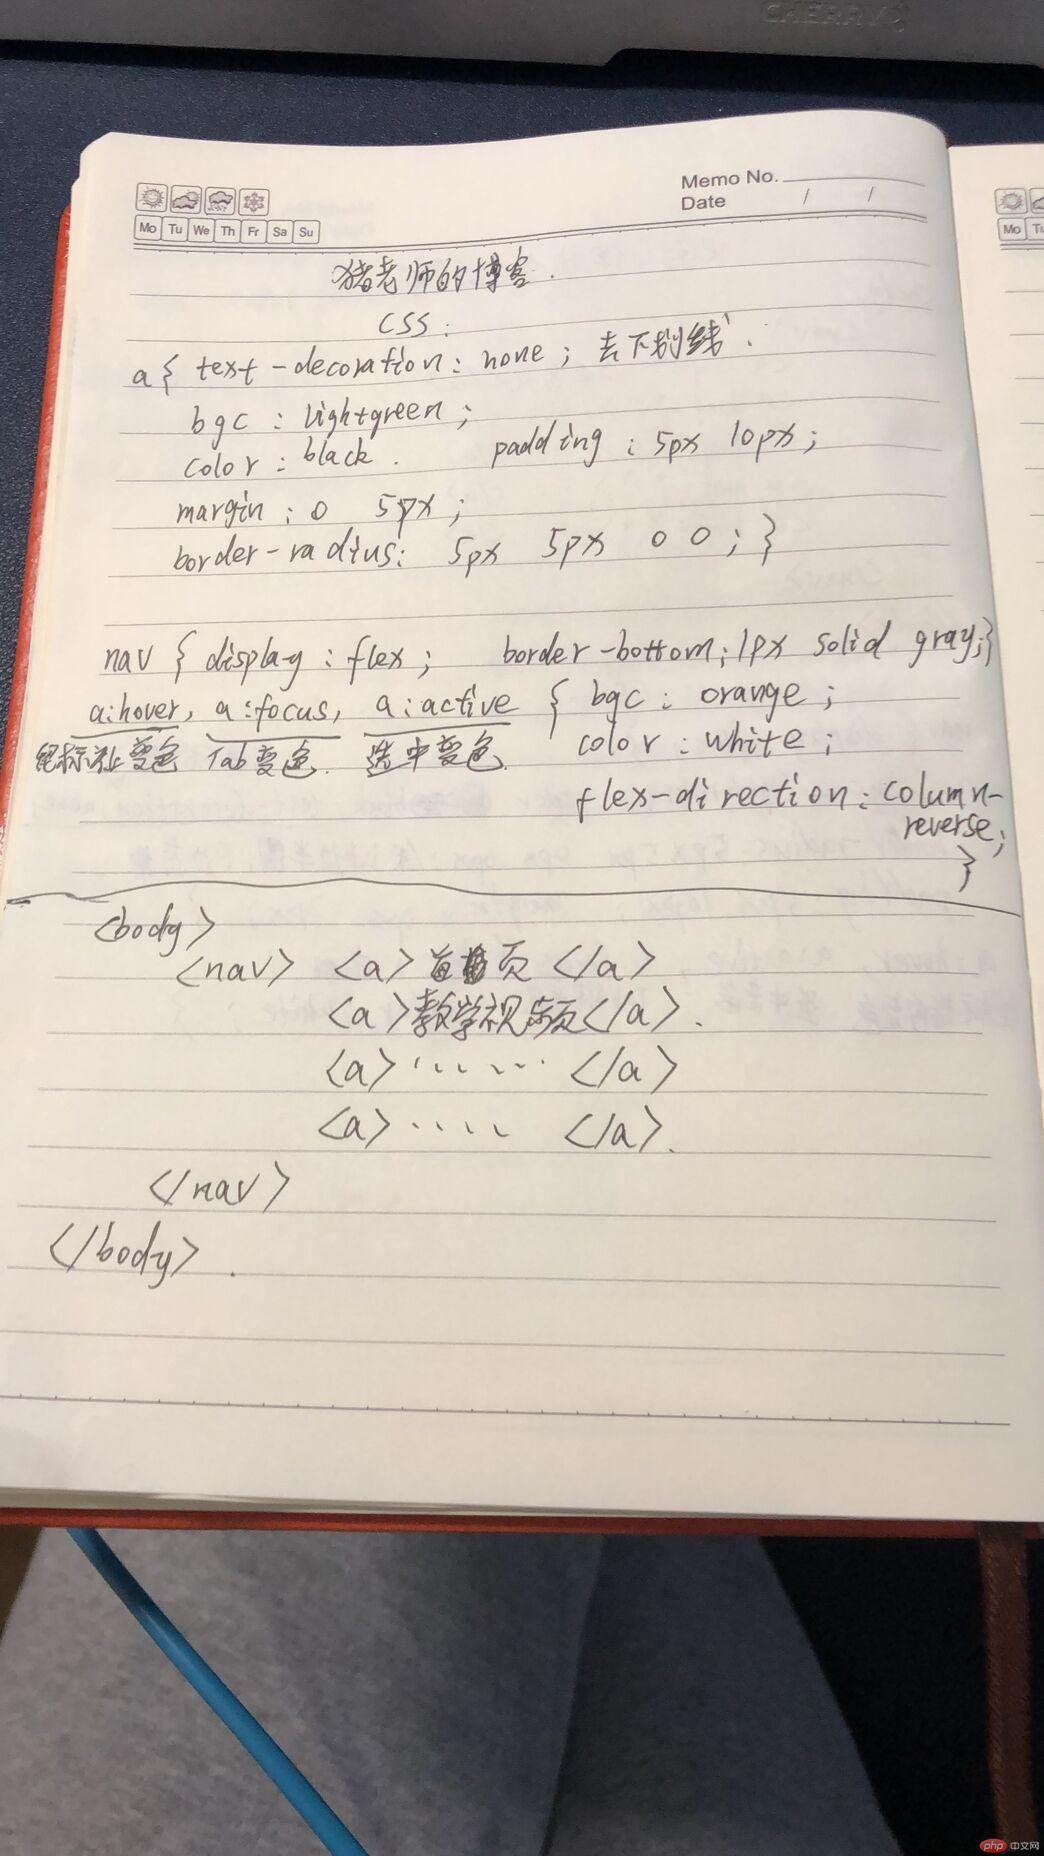 CHERRY
Memo No.
Date / /
Mo Tu We Th Fr Sa Su
Mo Tu
猪老师的博客.
CSS:
a{ text-decoration: none; 去下划线.
bgc: lightgreen;
color: black. padding: 5px 10px;
margin: 0 5px;
border-radius: 5px 5px 0 0; }
nav { display: flex; border-bottom: 1px solid gray;}
a:hover, a:focus, a:active { bgc: orange;
鼠标 变色 Tab变色. 选中变色. color: white;
flex-direction: column-
reverse;
}
<body>
<nav> <a>首页</a>
<a>教学视频</a>.
<a>......</a>
<a>.....</a>.
</nav>
</body>.
php 中文网